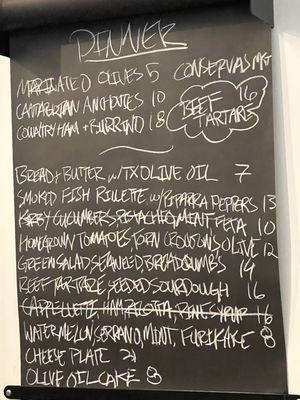 DINNER
MARINATED OLIVES 5 CONSERVAS MKT
CANTABRIAN ANCHOVIES 10
BEEF TARTARE 16
COUNTRY HAM + BURRINO 18
BREAD + BUTTER W/ TX OLIVE OIL 7
SMOKED FISH RILLETTE W/ PIPARRA PEPPERS 13
CUCUMBERS PISTACHIO MINT FETA 10
HOMEGROWN TOMATOES, TORN CROUTONS, OLIVE 12
GREEN SALAD, BREADCRUMBS 14
BEEF TARTARE SEEDED SOURDOUGH 16
CAPPELLETTI, HAM, RICOTTA, PINE SYRUP 16
WATERMELON, SERRANO, MINT, FURIKAKE 8
CHEESE PLATE 21
OLIVE OIL CAKE 8